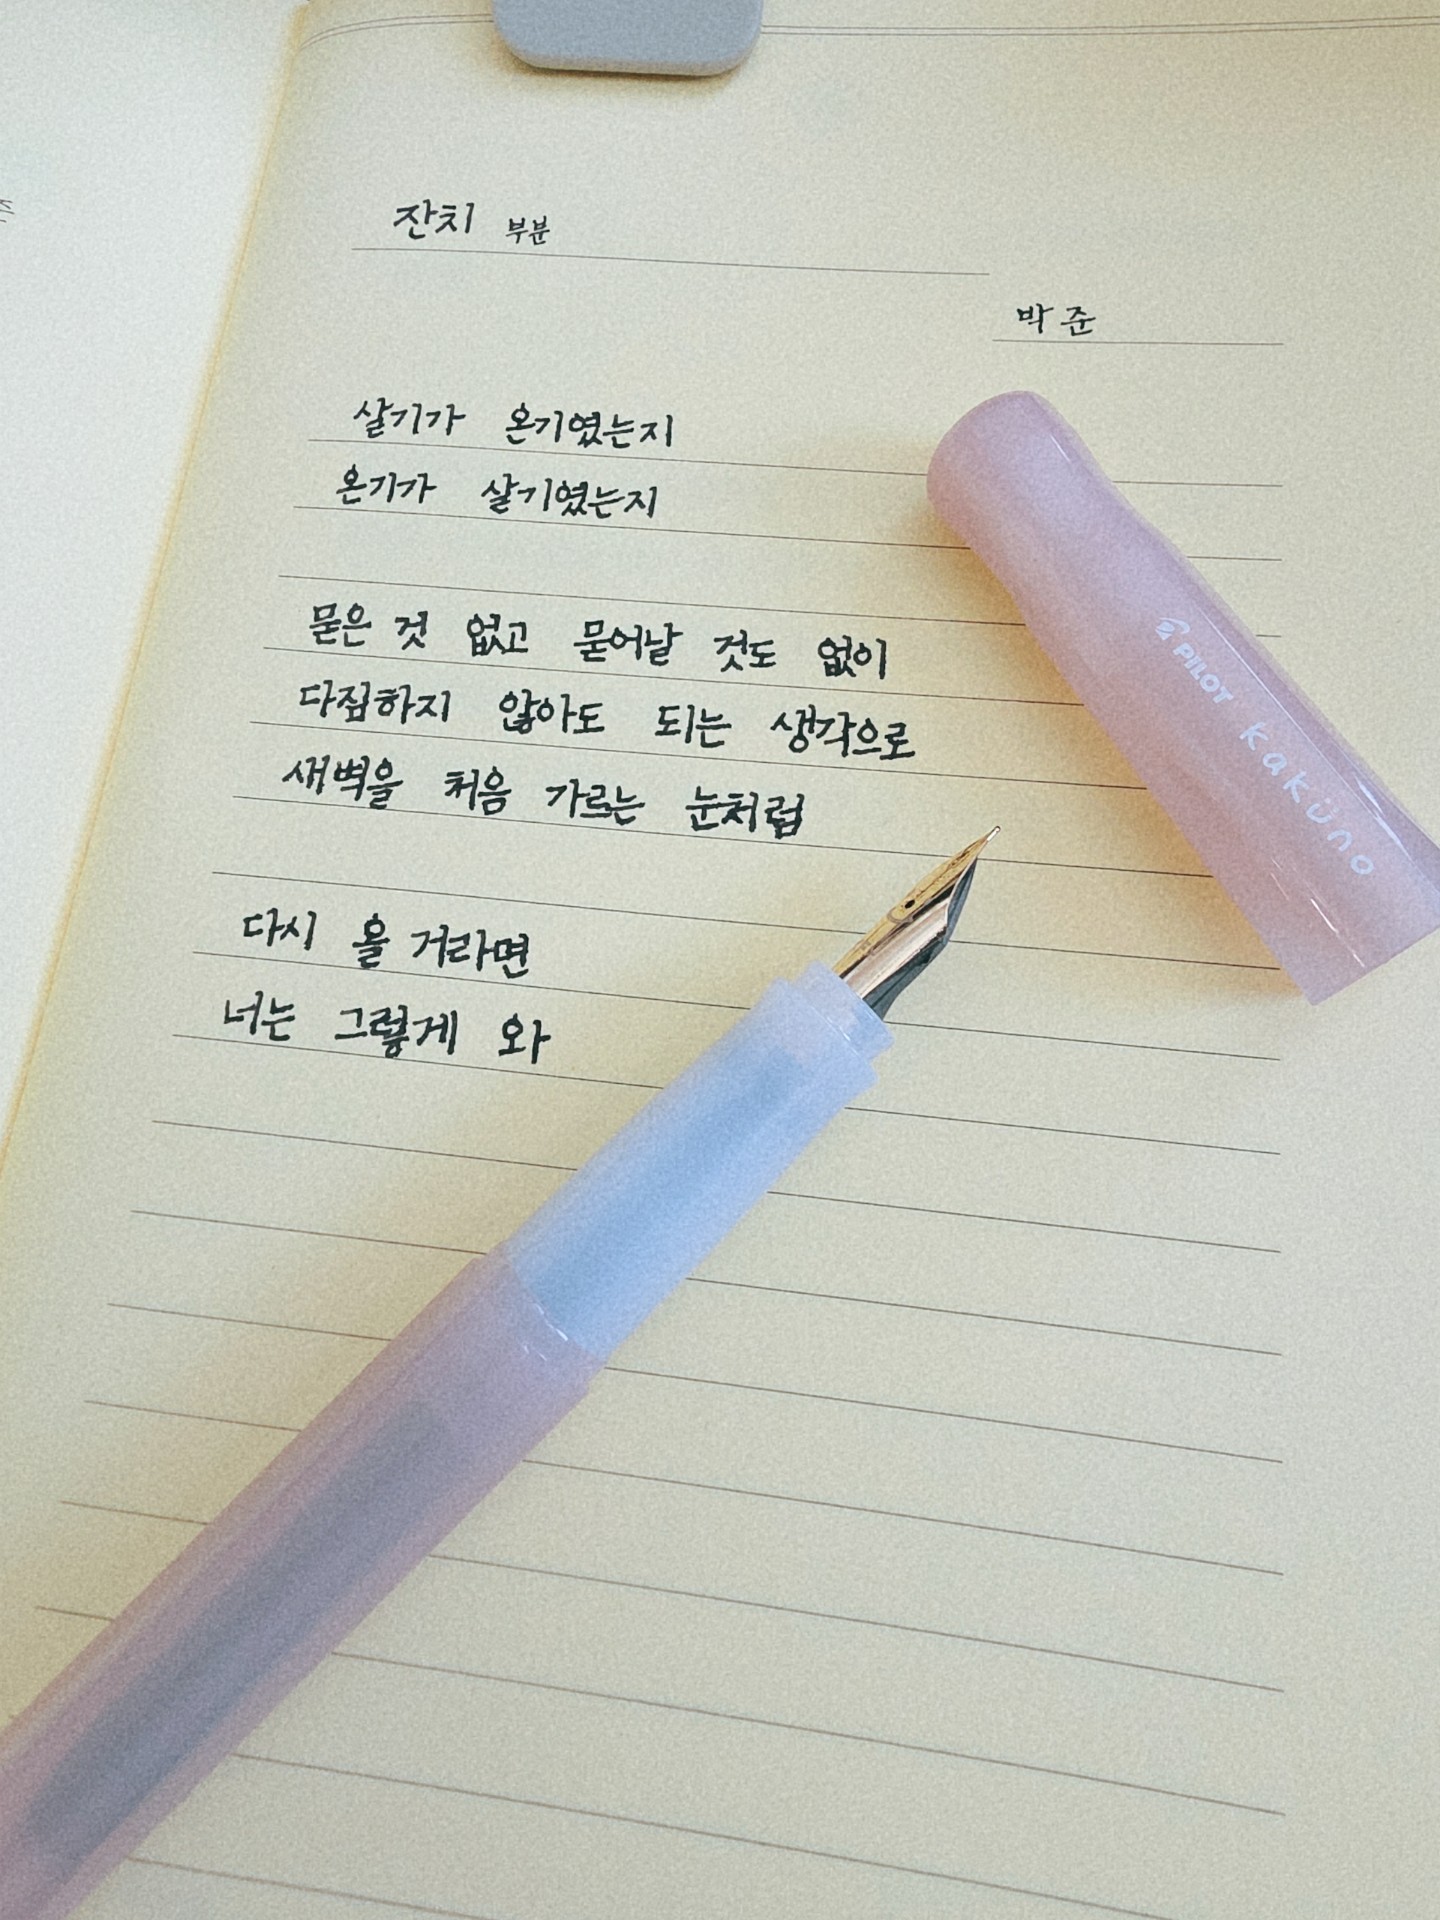 잔치 부분
박준
살기가 온기였는지
온기가 살기였는지
묻은 것 없고 묻어날 것도 없이
다짐하지 않아도 되는 생각으로
새벽을 처음 가르는 눈처럼
다시 올 거라면
너는 그렇게 와
PILOT kakuno